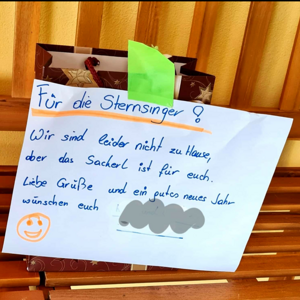 Für die Sternsinger!
Wir sind leider nicht zu Hause,
aber das Sackerl ist für euch.
Liebe Grüße und ein gutes neues Jahr
wünschen euch